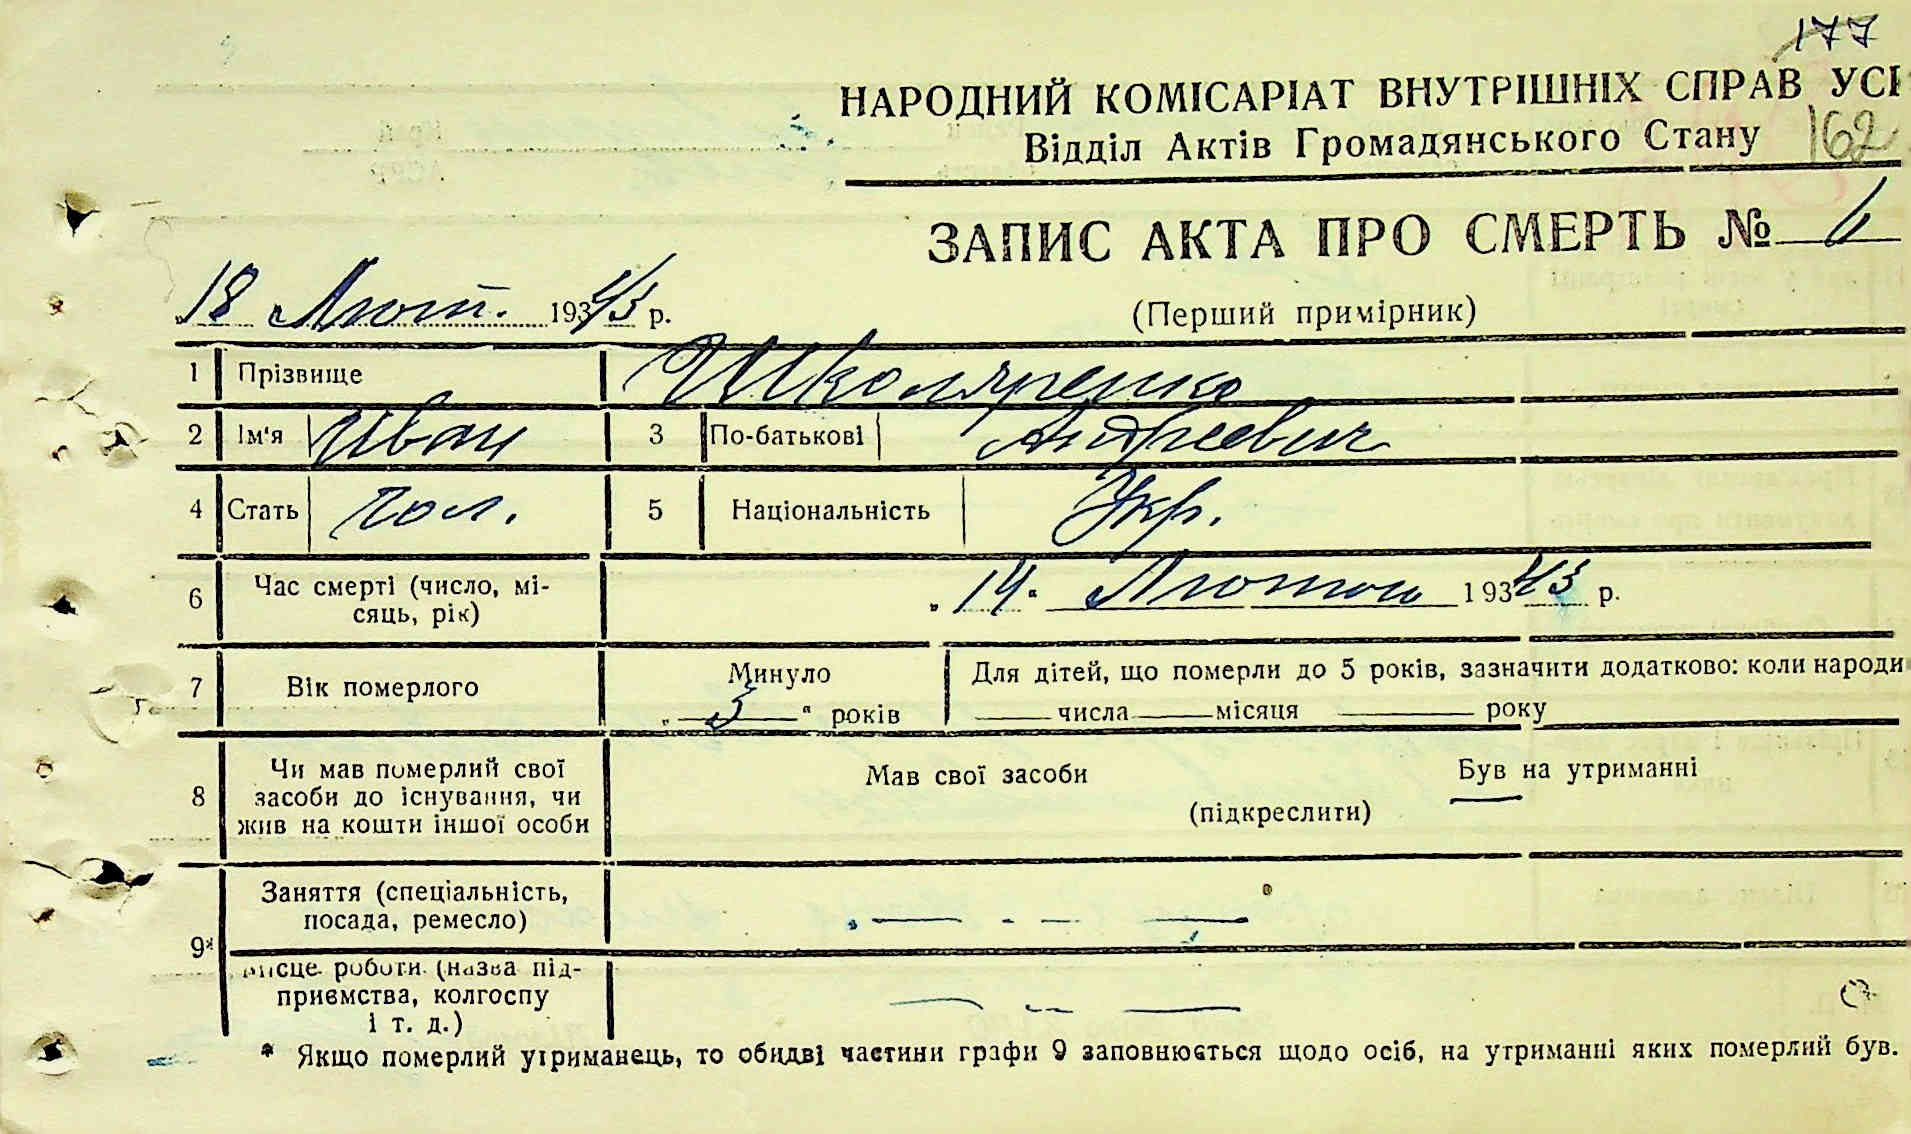 177
НАРОДНИЙ КОМІСАРІАТ ВНУТРІШНІХ СПРАВ УСР
Відділ Актів Громадянського Стану 162
ЗАПИС АКТА ПРО СМЕРТЬ № 6
„18 Лют. 19343 р.
(Перший примірник)
1 Прізвище Школяренко
2 Ім'я Иван 3 По-батькові Андреевич
4 Стать чол. 5 Національність Укр.
6 Час смерті (число, місяць, рік) „14. Лютого 19343 р.
7 Вік померлого Минуло „3" років Для дітей, що померли до 5 років, зазначити додатково: коли народи
числа місяця року
8 Чи мав померлий свої засоби до існування, чи жив на кошти іншої особи Мав свої засоби Був на утриманні
(підкреслити)
9* Заняття (спеціальність, посада, ремесло) — - - —
Місце роботи (назва підприємства, колгоспу і т. д.) — - —
* Якщо померлий утриманець, то обидві частини графи 9 заповнюється щодо осіб, на утриманні яких померлий був.